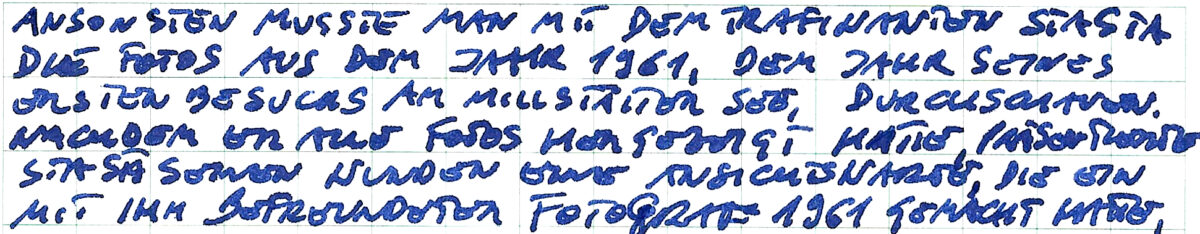 ANSONSTEN MUSSTE MAN MIT DEM TRAFIKANTEN STASTA
DIE FOTOS AUS DEM JAHR 1961, DEM JAHR SEINES
ERSTEN BESUCHS AM MILLSTÄTTER SEE, DURCHSCHAUEN.
NACHDEM ER ALLE FOTOS HERGEZEIGT HATTE, PRÄSENTIERTE
STASTA SEINEN KUNDEN EINE ANSICHTSKARTE, DIE EIN
MIT IHM BEFREUNDETER FOTOGRAF 1961 GEMACHT HATTE,